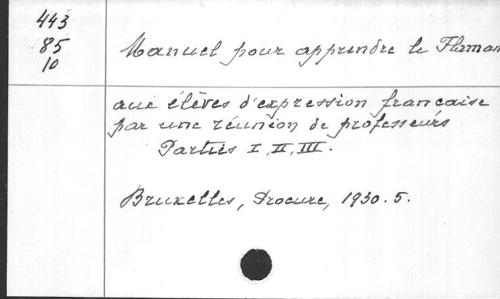 443
85
10
Manuel pour apprendre le Flaman
aux élèves d'expression française
par une réunion de professeurs
Parties I, II, III.
Bruxelles, Procure, 1930.5.